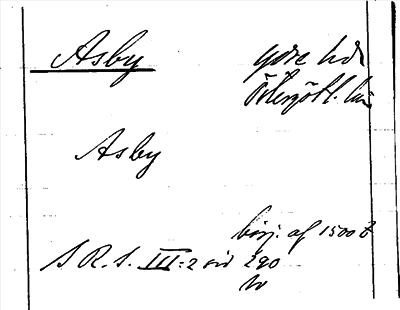 Asby Ydre hd
Östergötl. län
Asby
börj. af 1500 t
S.R.S. III:2 sid 290